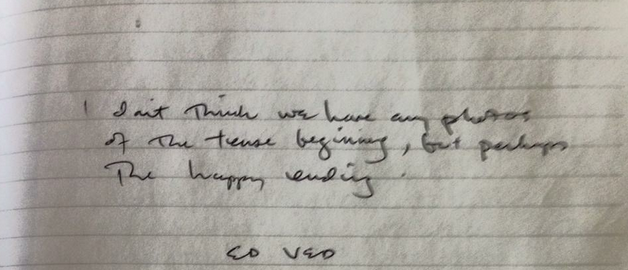 I don't think we have any photos
of the tense begining, but perhaps
The happy ending.
ED VED